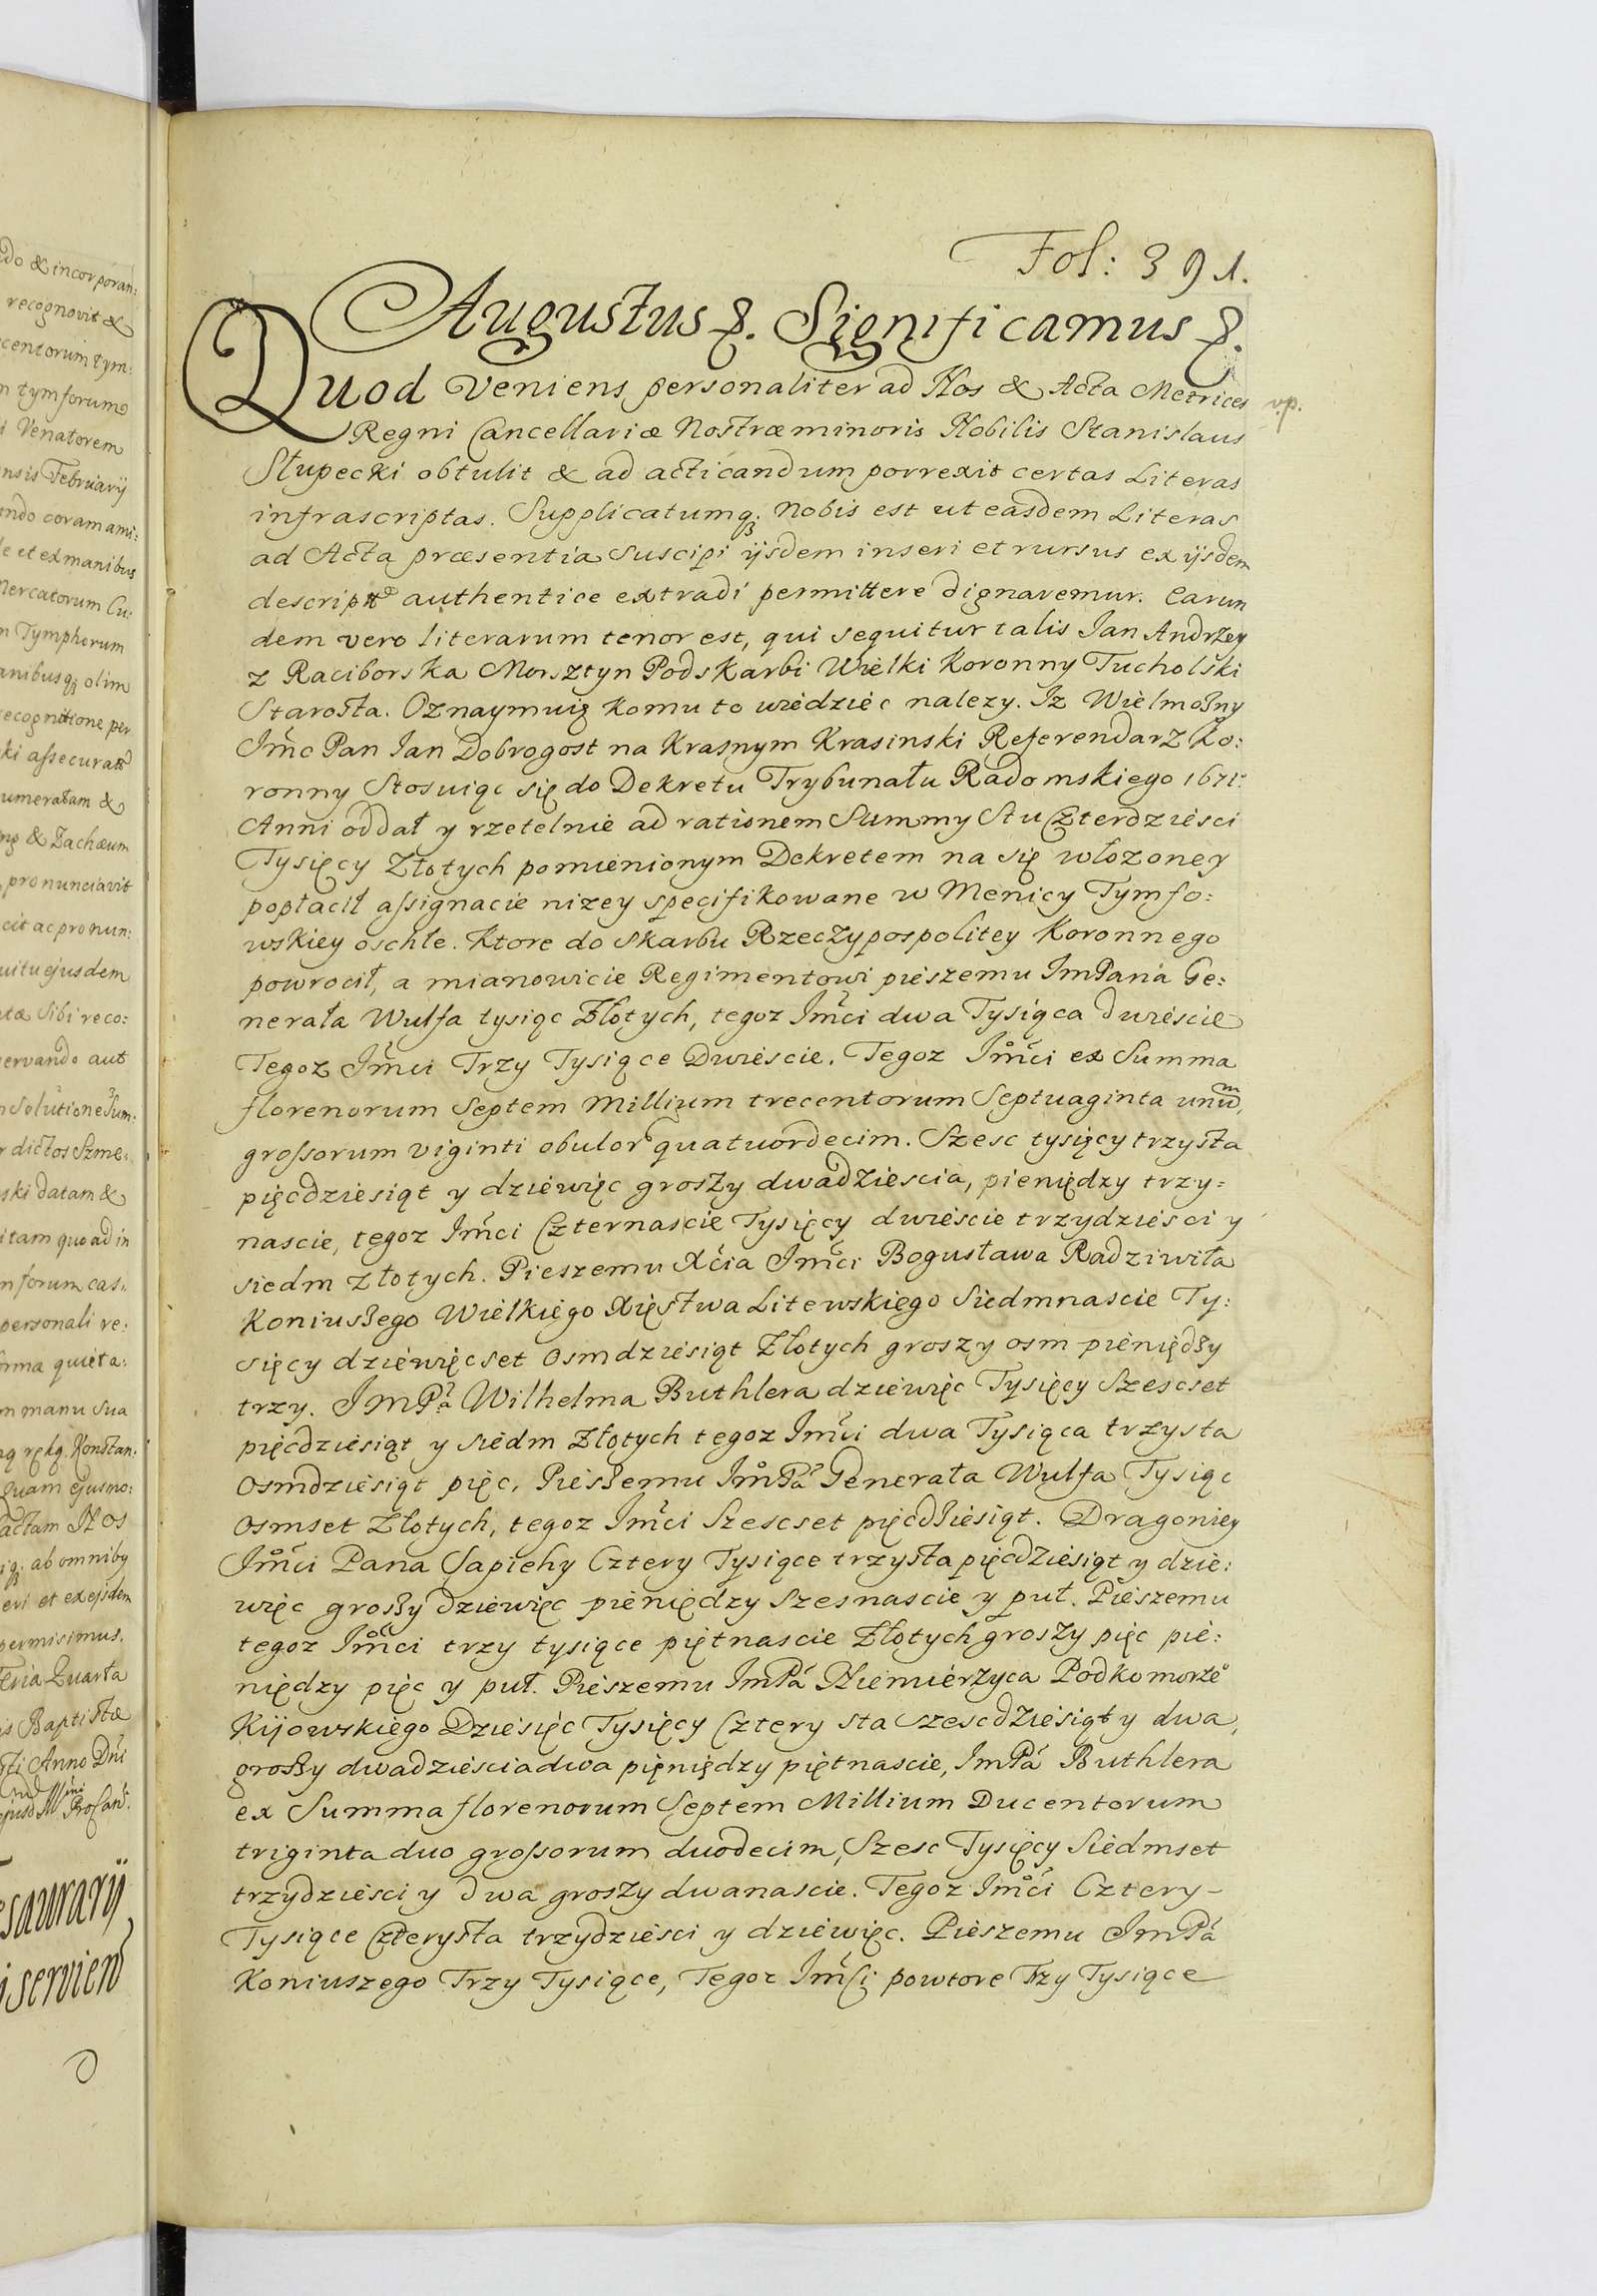 do & incorporan:
recognovit &
centorum tym:
n tymforum
i Venatorem
nsis Februarij
ando coram ami:
le et ex manibus
Mercatorum Cu:
m Tymphorum
anibusq; olim
recognitione per
ki assecurat
umeratam &
& Zachæum
pronunciavit
cit ac pronun:
uitu ejusdem
tæ Sibi reco:
servando aut
Solutione Sum:
r dictos Szme:
ski datam &
itam quo ad in
n forum cas:
personali re:
forma quieta:
m manu Sua
ręką. Konstan:
Quam ejusmo:
actam Nos
ab omnibq
eri et ex ejsdem
permisimus.
Feria Quarta
is Baptistæ
sti Anno Dni
ProCan:
esaurarij
i servien
Fol: 391.
Augustus &. Significamus &.
Quod veniens personaliter ad Nos & Acta Metrices v.p.
Regni Cancellariæ Nostræ minoris Nobilis Stanislaus
Słupecki obtulit & ad acticandum porrexit certas Literas
infrascriptas. Supplicatumq; Nobis est ut easdem Literas
ad Acta præsentia suscipi ijsdem inseri et rursus ex ijsdem
descript authentice extradi permittere dignaremur. Earun
dem vero literarum tenor est, qui sequitur talis Jan Andrzey
z Raciborska Morsztyn Podskarbi Wielki Koronny Tucholski
Starosta. Oznaymuię komu to wiedzieć nalezy. Iz Wielmożny
Jmc Pan Jan Dobrogost na Krasnym Krasinski Referendarz Ko:
ronny Stosuiąc się do Dekretu Trybunału Radomskiego 1671.
Anni oddał y rzetelnie ad rationem Summy Stu Czterdzieści
Tysięcy Złotych pomienionym Dekretem na się włozoney
popłacił assignacie nizey specifikowane w Menicy Tymfo:
wskiey oschłe. Ktore do Skarbu Rzeczypospolitey Koronnego
powrocił, a mianowicie Regimentowi pieszemu ImPana Ge:
nerała Wulfa tysiąc Złotych, tegoz Jmci dwa Tysiąca dwiescie
Tegoz Jmci Trzy Tysiące Dwiescie. Tegoz Jmci ex Summa
florenorum Septem Millium trecentorum Septuaginta unum,
grossorum viginti obulor quatuordecim. Szesc tysięcy trzysta
pięcdziesiąt y dziewięc groszy dwadziescia, pieniędzy trzy=
nascie, tegoz Jmci Czternascie Tysięcy dwiescie trzydziesci y
siedm złotych. Pieszemu Xcia Jmci Bogusława Radziwiła
Koniuszego Wielkiego Xięstwa Litewskiego Siedmnascie Ty:
sięcy dziewięcset Osmdziesiąt Złotych groszy osm pieniędzy
trzy. JMPa Wilhelma Buthlera dziewięc Tysięcy Szescset
pięcdziesiąt y siedm Złotych tegoz Jmci dwa Tysiąca trzysta
Osmdziesiąt pięc, Pieszemu JmPa Generała Wulfa Tysiąc
Osmset Złotych, tegoz Jmci Szescset pięcdziesiąt. Dragoniey
Jmci Pana Sapiehy Cztery Tysiące trzysta pięcdziesiąt y dzie:
więc groszy dziewięc pieniędzy szesnascie y puł. Pieszemu
tegoz Jmci trzy tysiące piętnascie Złotych groszy pięc pie:
niędzy pięc y puł. Pieszemu JmPa Niemierzyca Podkomorze
Kijowskiego Dziesięc Tysięcy Cztery sta szescdziesiąt y dwa,
groszy dwadziescia dwa pięniędzy piętnascie, JmPa Buthlera
ex Summa florenorum Septem Millium Ducentorum
triginta duo grossorum duodecim, Szesc Tysięcy Siedmset
trzydziesci y dwa groszy dwanascie. Tegoz Jmci Cztery-
Tysiące Czterysta trzydziesci y dziewięc. Pieszemu JmPa
Koniuszego Trzy Tysiące, Tegoz Jmci powtore Trzy Tysiące